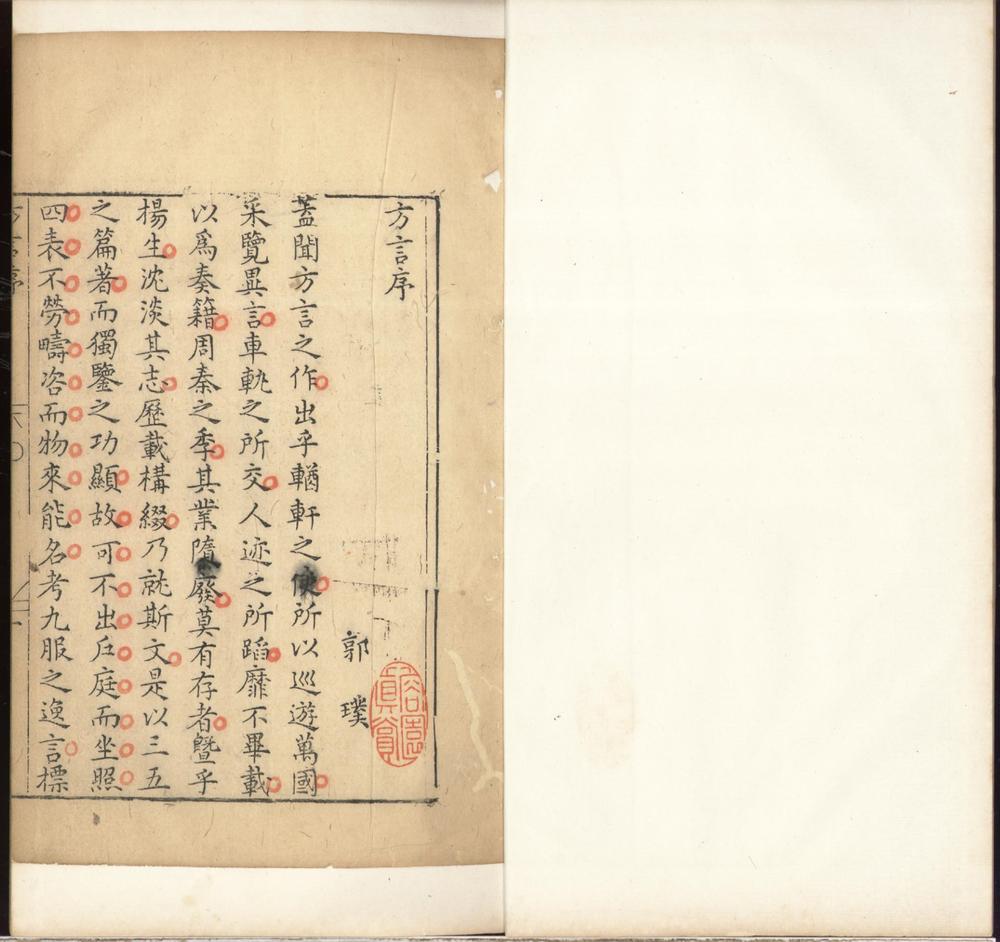 方言序
郭璞
蓋聞方言之作出乎輶軒之使所以巡遊萬國
采覽異言車軌之所交人迹之所蹈靡不畢載
以爲奏籍周秦之季其業隳廢莫有存者曁乎
揚生沈淡其志歷載構綴乃就斯文是以三五
之篇著而獨鑒之功顯故可不出戶庭而坐照
四表不勞疇咨而物來能名考九服之逸言標
方言序